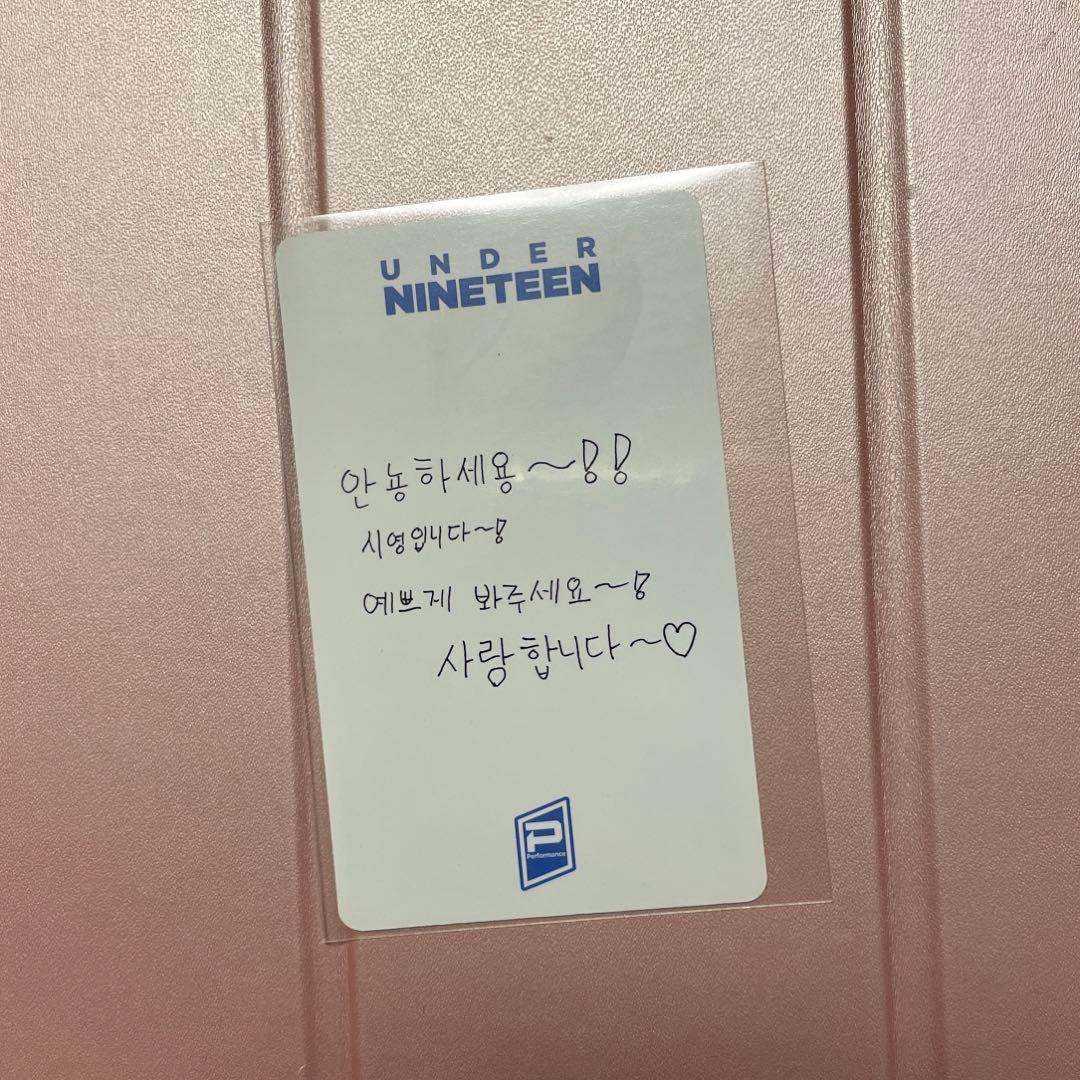 UNDER
NINETEEN
안뇽하세용~!!
시영입니다~!
예쁘게 봐주세요~!
사랑합니다~♡
P
Performance